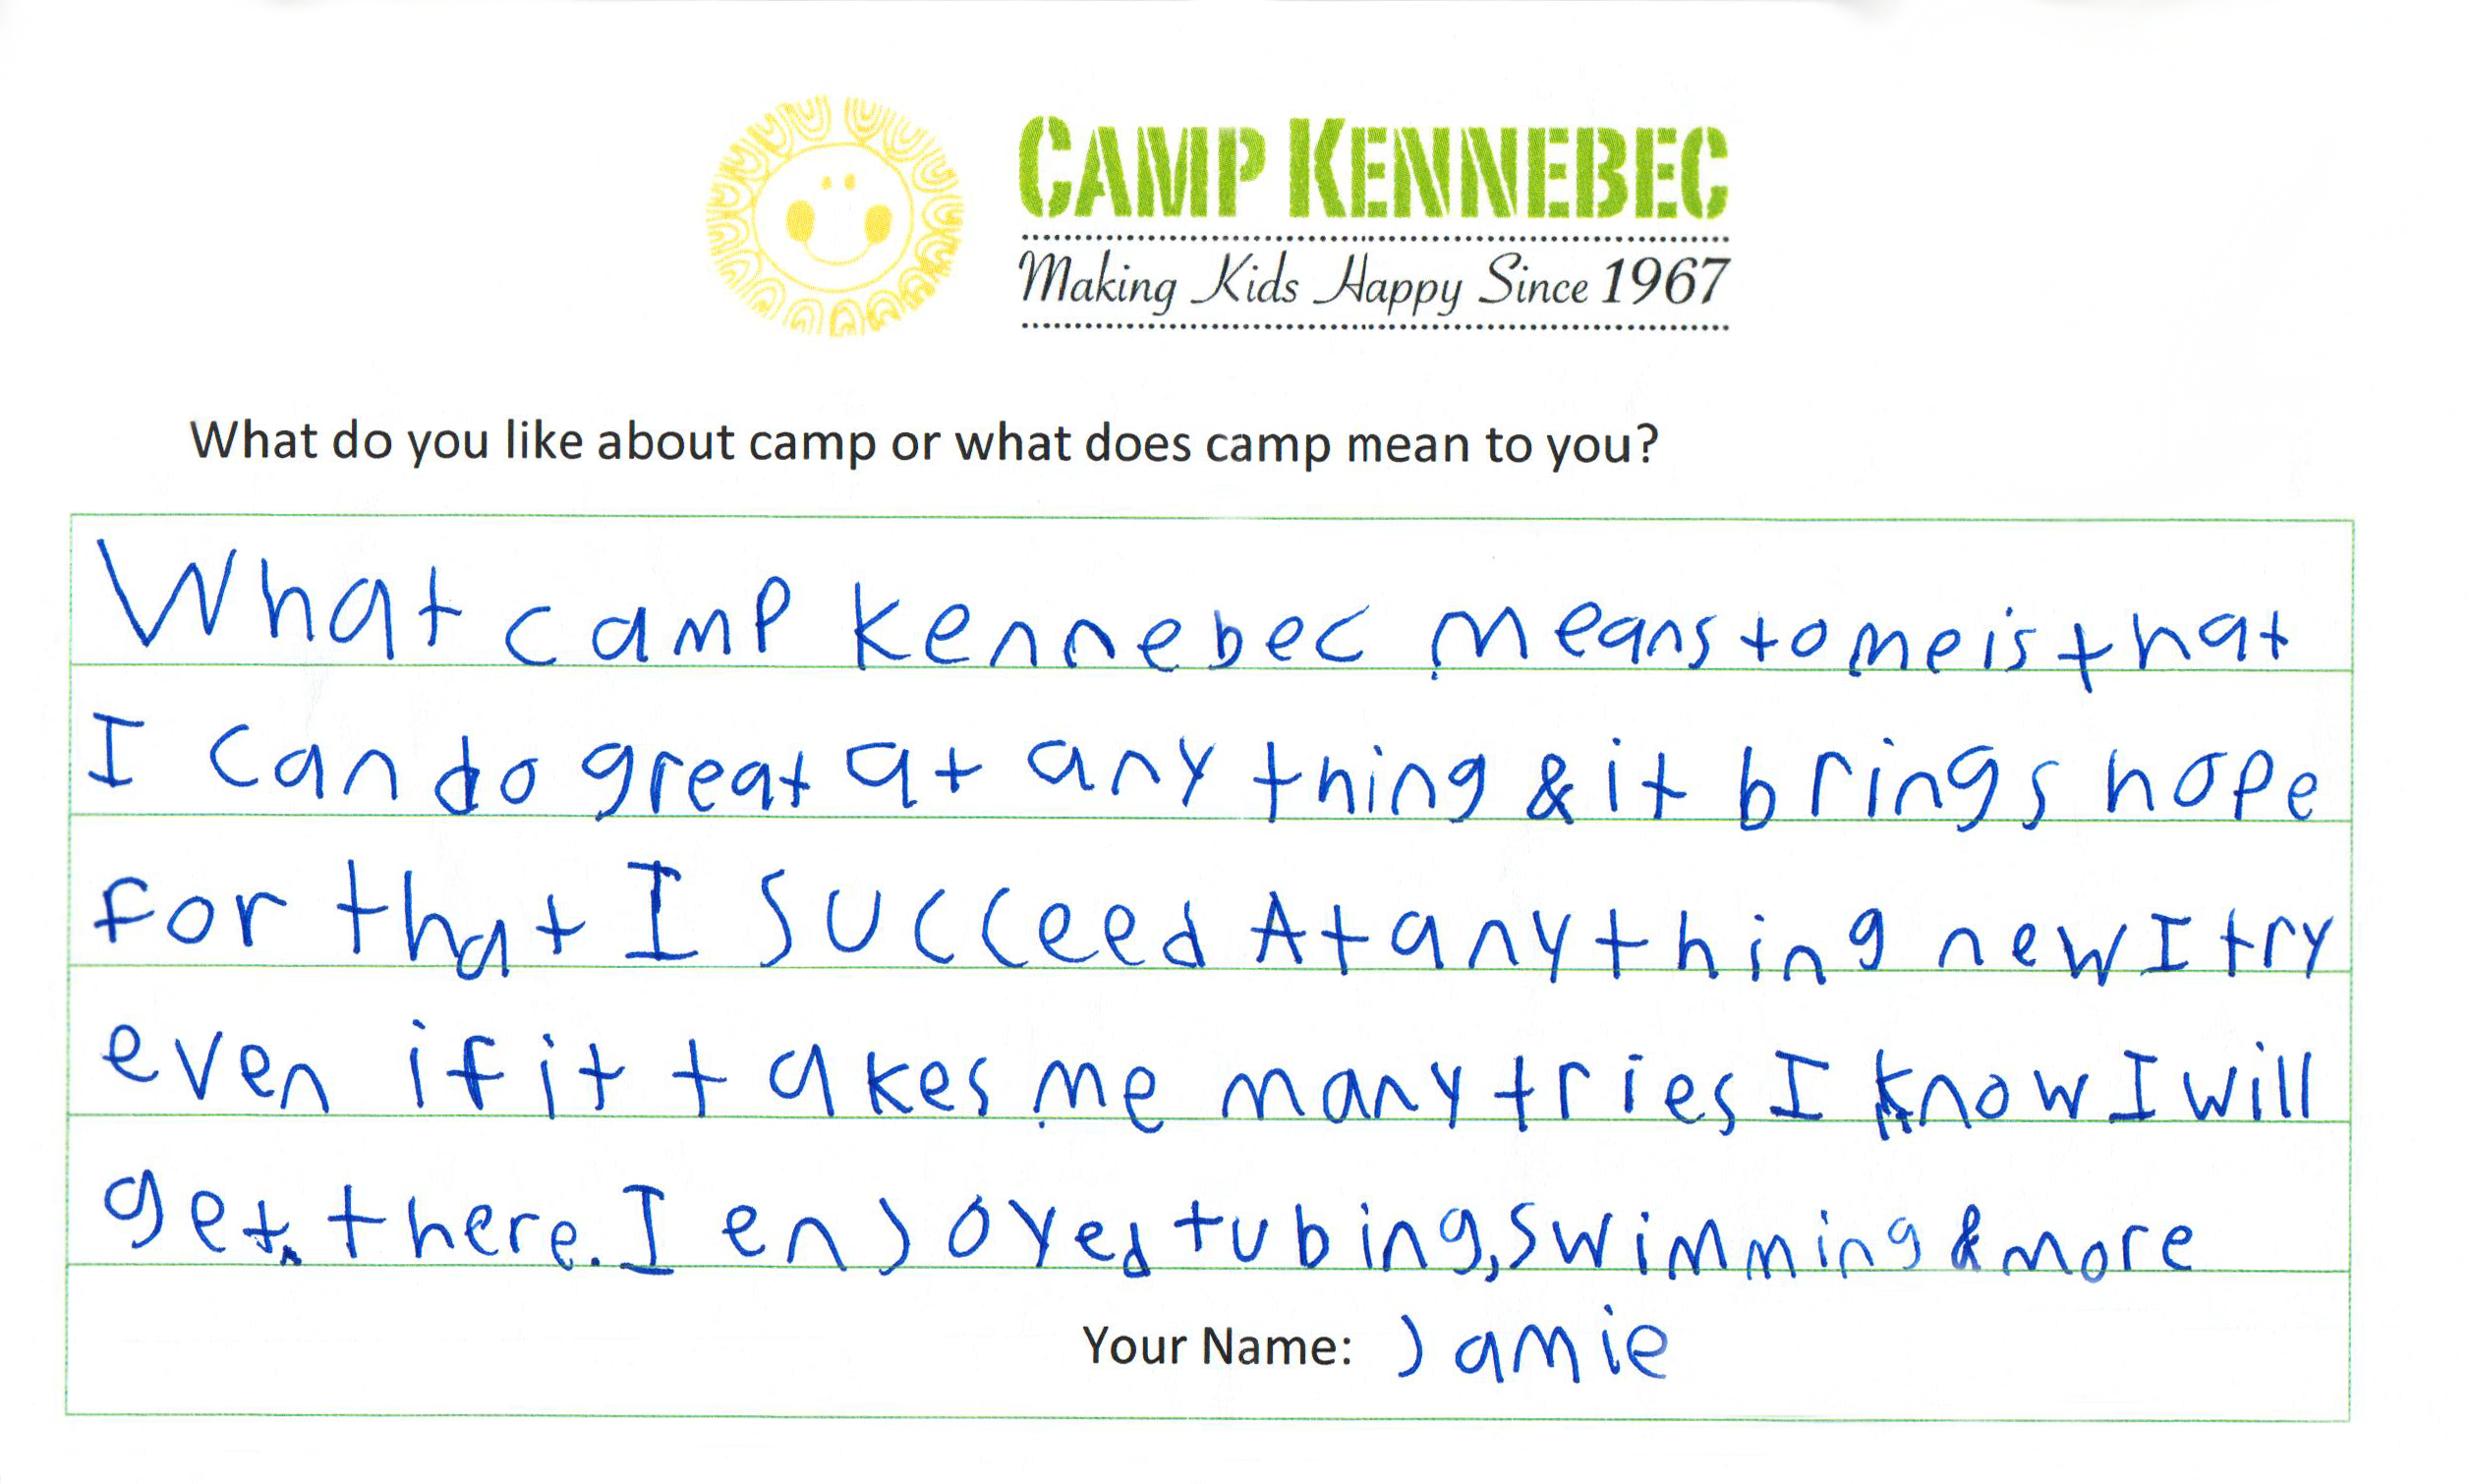 CAMP KENNEBEC
Making Kids Happy Since 1967
What do you like about camp or what does camp mean to you?
What camp kennebec means to me is that
I can do great at any thing & it brings hope
for that I succeed At anything new I try
even if it takes me many tries I know I will
get there. I enjoyed tubing, swimming & more
Your Name: Jamie